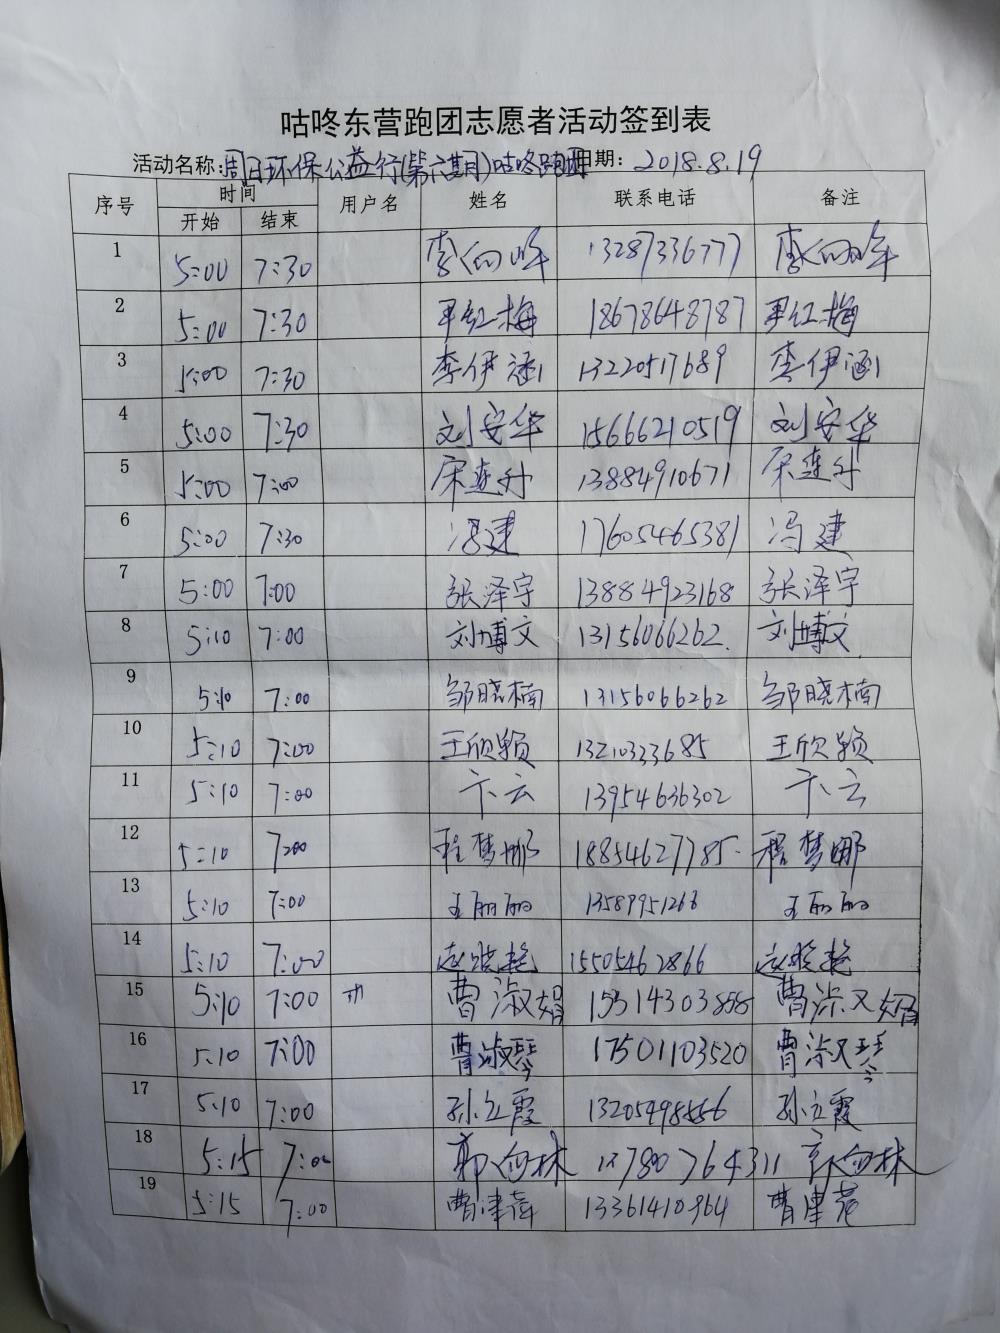 咕咚东营跑团志愿者活动签到表
活动名称:周日环保公益行(第六期)咕咚跑团 日期: 2018.8.19
序号 时间 用户名 姓名 联系电话 备注
开始 结束
1 5:00 7:30 李向峰 13287336777 李向峰
2 5:00 7:30 红梅 18678648787 红梅
3 5:00 7:30 李伊涵 13220517689 李伊涵
4 5:00 7:30 刘安华 15666210519 刘安华
5 5:00 7:00 宋连升 13884910671 宋连升
6 5:00 7:30 冯建 17605465381 冯建
7 5:00 7:00 张泽宇 13884923168 张泽宇
8 5:10 7:00 刘博文 13156066262. 刘博文
9 5:10 7:00 邹晓楠 13156066262 邹晓楠
10 5:10 7:00 王欣颖 13210333685 王欣颖
11 5:10 7:00 卞云 13954636302 卞云
12 5:10 7:00 程梦娜 18854627785 程梦娜
13 5:10 7:00 王丽丽 13589951266 王丽丽
14 5:10 7:00 赵晓艳 15505462866 赵晓艳
15 5:10 7:00 曹淑娟 15314303858 曹淑娟
16 5:10 7:00 曹淑琴 17501103520 曹淑琴
17 5:10 7:00 孙立霞 孙立霞
18 5:15 7:00 郭向林 郭向林
19 5:15 7:00 曹津 13361410964 曹津